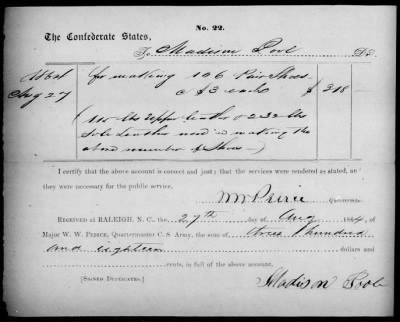 No. 22.
The Confederate States,
To Madison Pool Dr.
1864
Aug 27 for making 106 Pair Shoes
@ $3 each $ 318 —
(115 lbs upper leather & 232 lbs
Sole Leather used in making the
above number of Shoes —)
I certify that the above account is correct and just; that the services were rendered as stated, and
they were necessary for the public service.
W W Peirce
Quartermaster.
Received at RALEIGH, N. C., the 27th day of Aug 1864, of
Major W. W. PEIRCE, Quartermaster C. S. Army, the sum of three hundred
and eighteen dollars and
cents, in full of the above account.
[Signed Duplicates.] Madison Pool